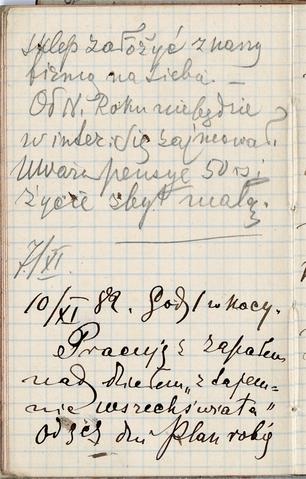 sklep założyć z naszą
firmą na siebie. —
Od N. Roku nie będzie
w inter. się zajmował.
Uważa pensyę 50 rs i
życie zbyt małą.
7/XI.
10/XI 82. Godz 1 w nocy.
Pracuję z zapałem
nad dziełem „z tajem-
nic wszechświata"
Od 3ch dni Plan robię